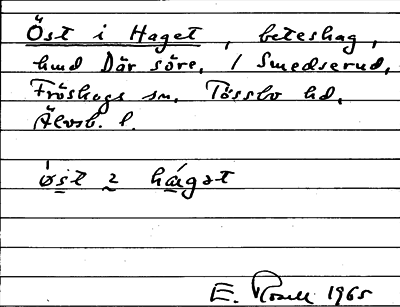 Öst i Haget, beteshag,
hmd Där söre, / Smedserud,
Fröskogs sn. Tössbo hd,
Älvsb. l.
øst 2 hágət
E. Rosell 1965